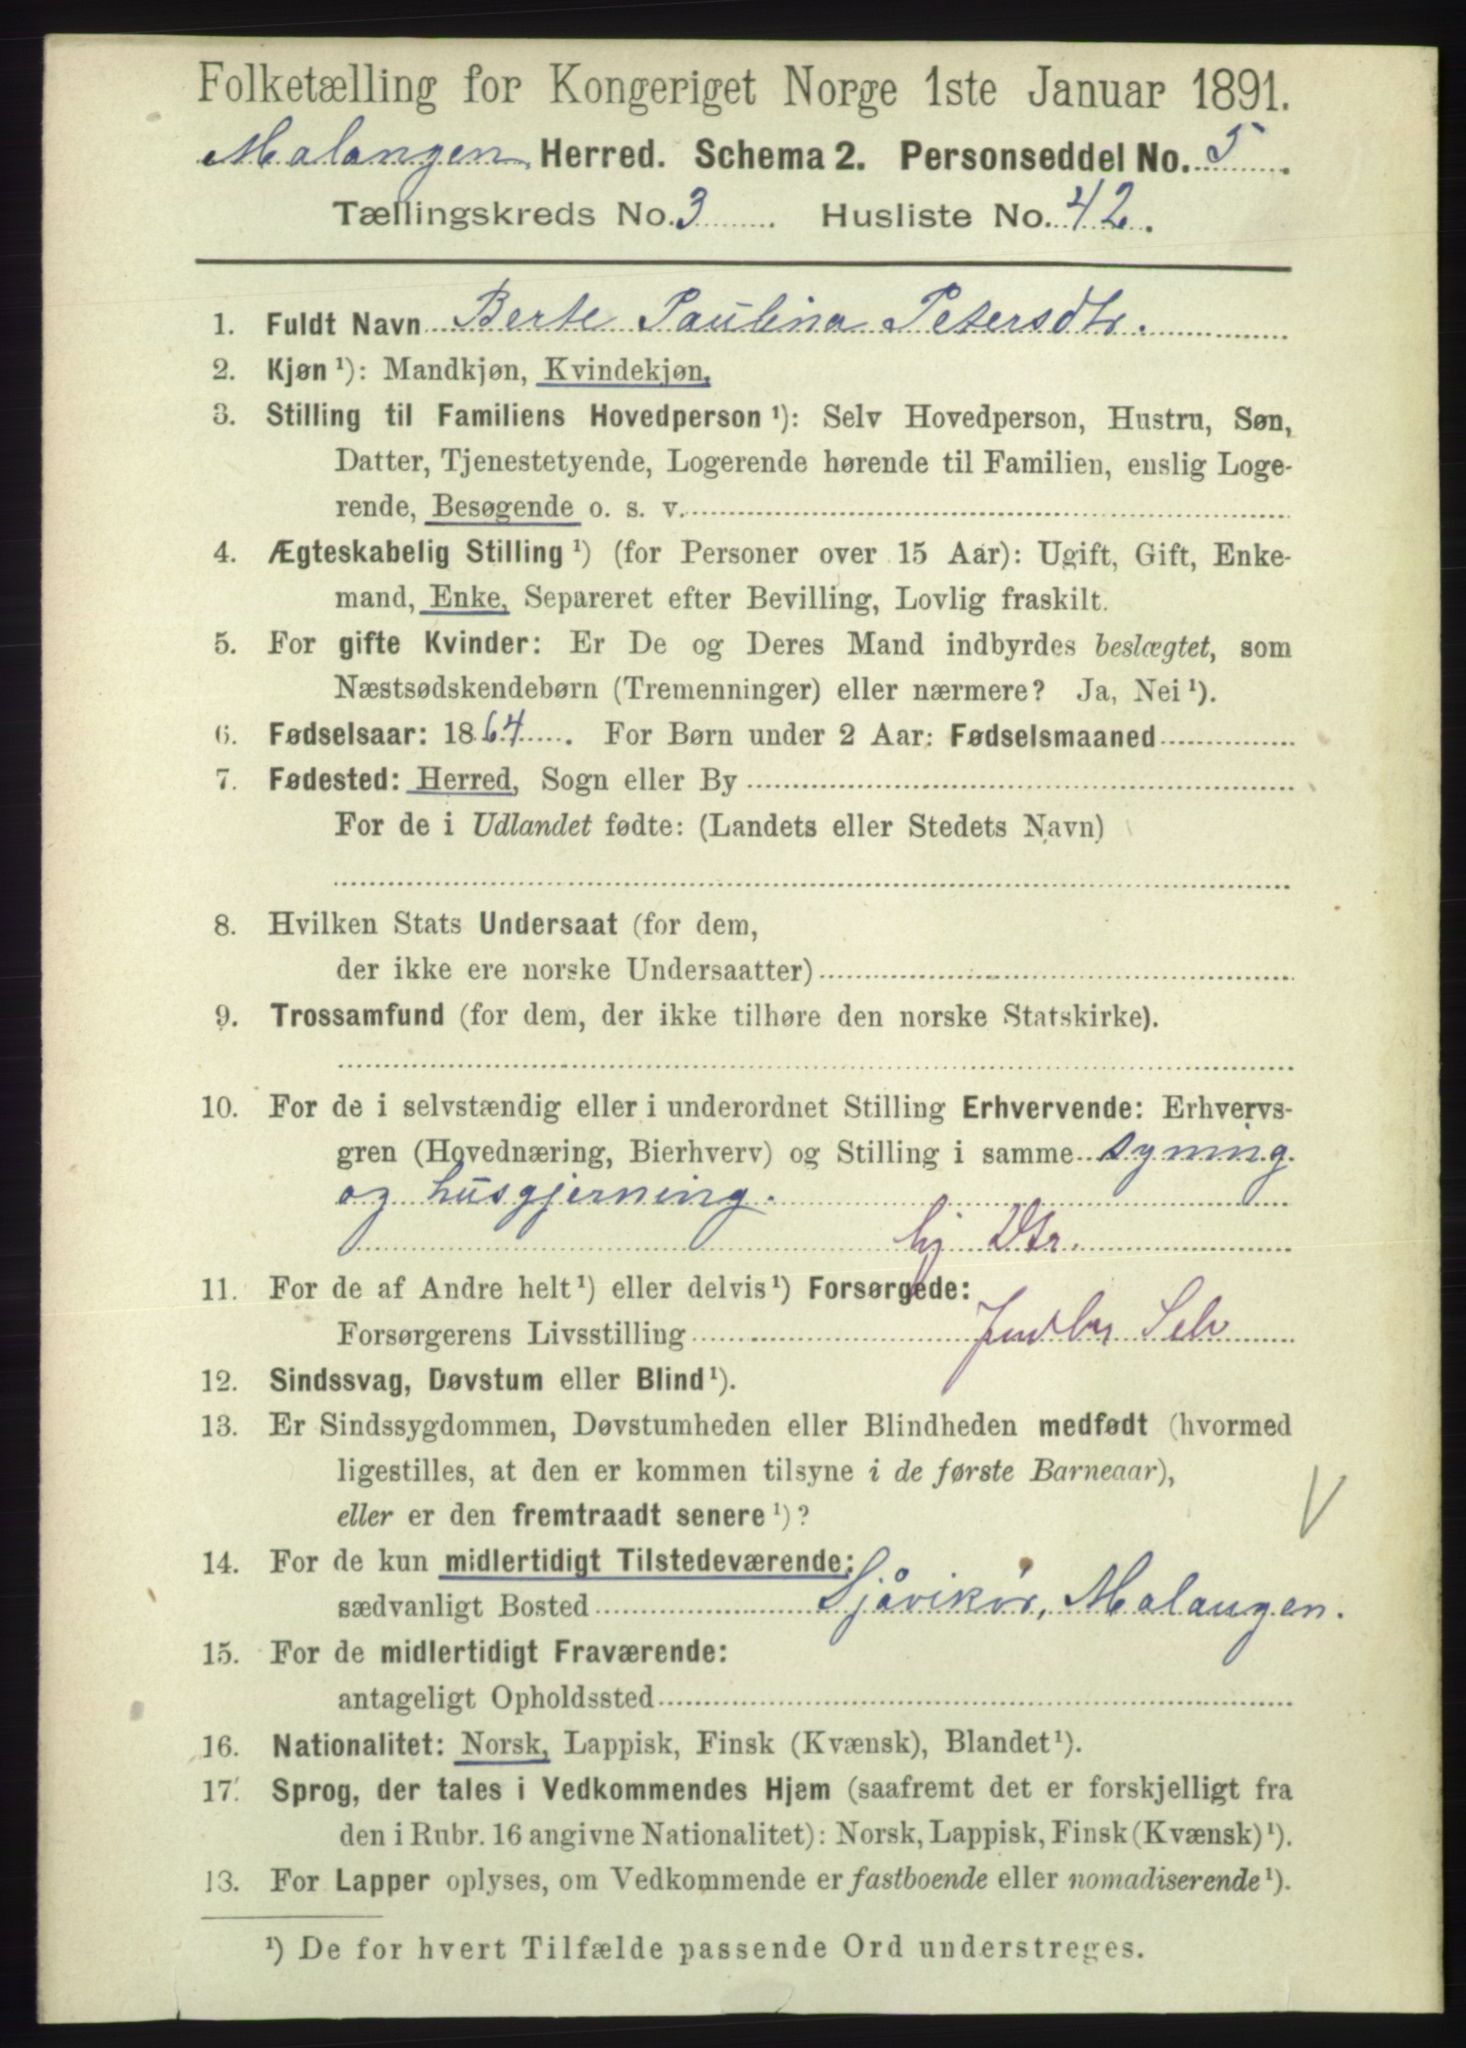 Folketælling for Kongeriget Norge 1ste Januar 1891.
Malangen Herred. Schema 2. Personseddel No. 5
Tællingskreds No. 3 Husliste No. 42.
1. Fuldt Navn Berte Paulina Petersdtr.
2. Kjøn ¹): Mandkjøn, Kvindekjøn,
3. Stilling til Familiens Hovedperson ¹): Selv Hovedperson, Hustru, Søn,
Datter, Tjenestetyende, Logerende hørende til Familien, enslig Loge-
rende, Besøgende o. s. v.
4. Ægteskabelig Stilling ¹) (for Personer over 15 Aar): Ugift, Gift, Enke-
mand, Enke, Separeret efter Bevilling, Lovlig fraskilt.
5. For gifte Kvinder: Er De og Deres Mand indbyrdes beslægtet, som
Næstsødskendebørn (Tremenninger) eller nærmere? Ja, Nei ¹).
6. Fødselsaar: 1864. For Børn under 2 Aar: Fødselsmaaned
7. Fødested: Herred, Sogn eller By
For de i Udlandet fødte: (Landets eller Stedets Navn)
8. Hvilken Stats Undersaat (for dem,
der ikke ere norske Undersaatter)
9. Trossamfund (for dem, der ikke tilhøre den norske Statskirke).
10. For de i selvstændig eller i underordnet Stilling Erhvervende: Erhvervs-
gren (Hovednæring, Bierhverv) og Stilling i samme syning
og husgjerning.
hj Dtr.
11. For de af Andre helt ¹) eller delvis ¹) Forsørgede:
Forsørgerens Livsstilling Selv
12. Sindssvag, Døvstum eller Blind ¹).
13. Er Sindssygdommen, Døvstumheden eller Blindheden medfødt (hvormed
ligestilles, at den er kommen tilsyne i de første Barneaar),
eller er den fremtraadt senere ¹)?
V
14. For de kun midlertidigt Tilstedeværende:
sædvanligt Bosted Sjåvikør, Malangen.
15. For de midlertidigt Fraværende:
antageligt Opholdssted
16. Nationalitet: Norsk, Lappisk, Finsk (Kvænsk), Blandet ¹).
17. Sprog, der tales i Vedkommendes Hjem (saafremt det er forskjelligt fra
den i Rubr. 16 angivne Nationalitet): Norsk, Lappisk, Finsk (Kvænsk) ¹).
13. For Lapper oplyses, om Vedkommende er fastboende eller nomadiserende ¹).
¹) De for hvert Tilfælde passende Ord understreges.